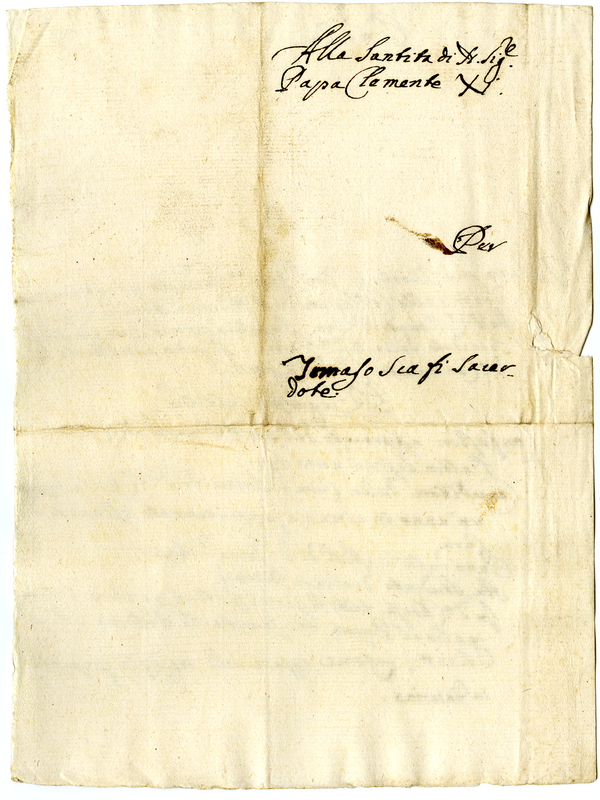 Alla Santità di N. Sig.re
Papa Clemente XI.
Per
Tomaso Scafi Sacer-
dote.